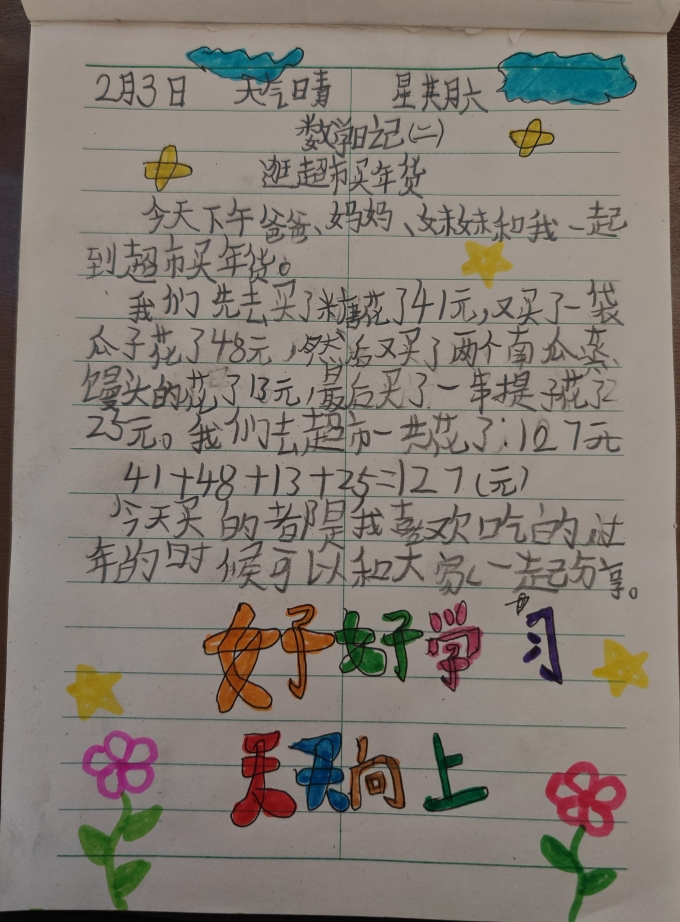 2月3日 天气晴 星期六
数学日记(二)
逛超市买年货
今天下午爸爸、妈妈、妹妹和我一起
到超市买年货。
我们先去买了糖花了41元,又买了一袋
瓜子花了48元,然后又买了两个南瓜蒸、
馒头的花了13元,最后买了一串提子花了
25元。我们去超市一共花了:127元
41+48+13+25=127(元)
今天买的都是我喜欢吃的,过
年的时候可以和大家一起分享。
好好学习
天天向上